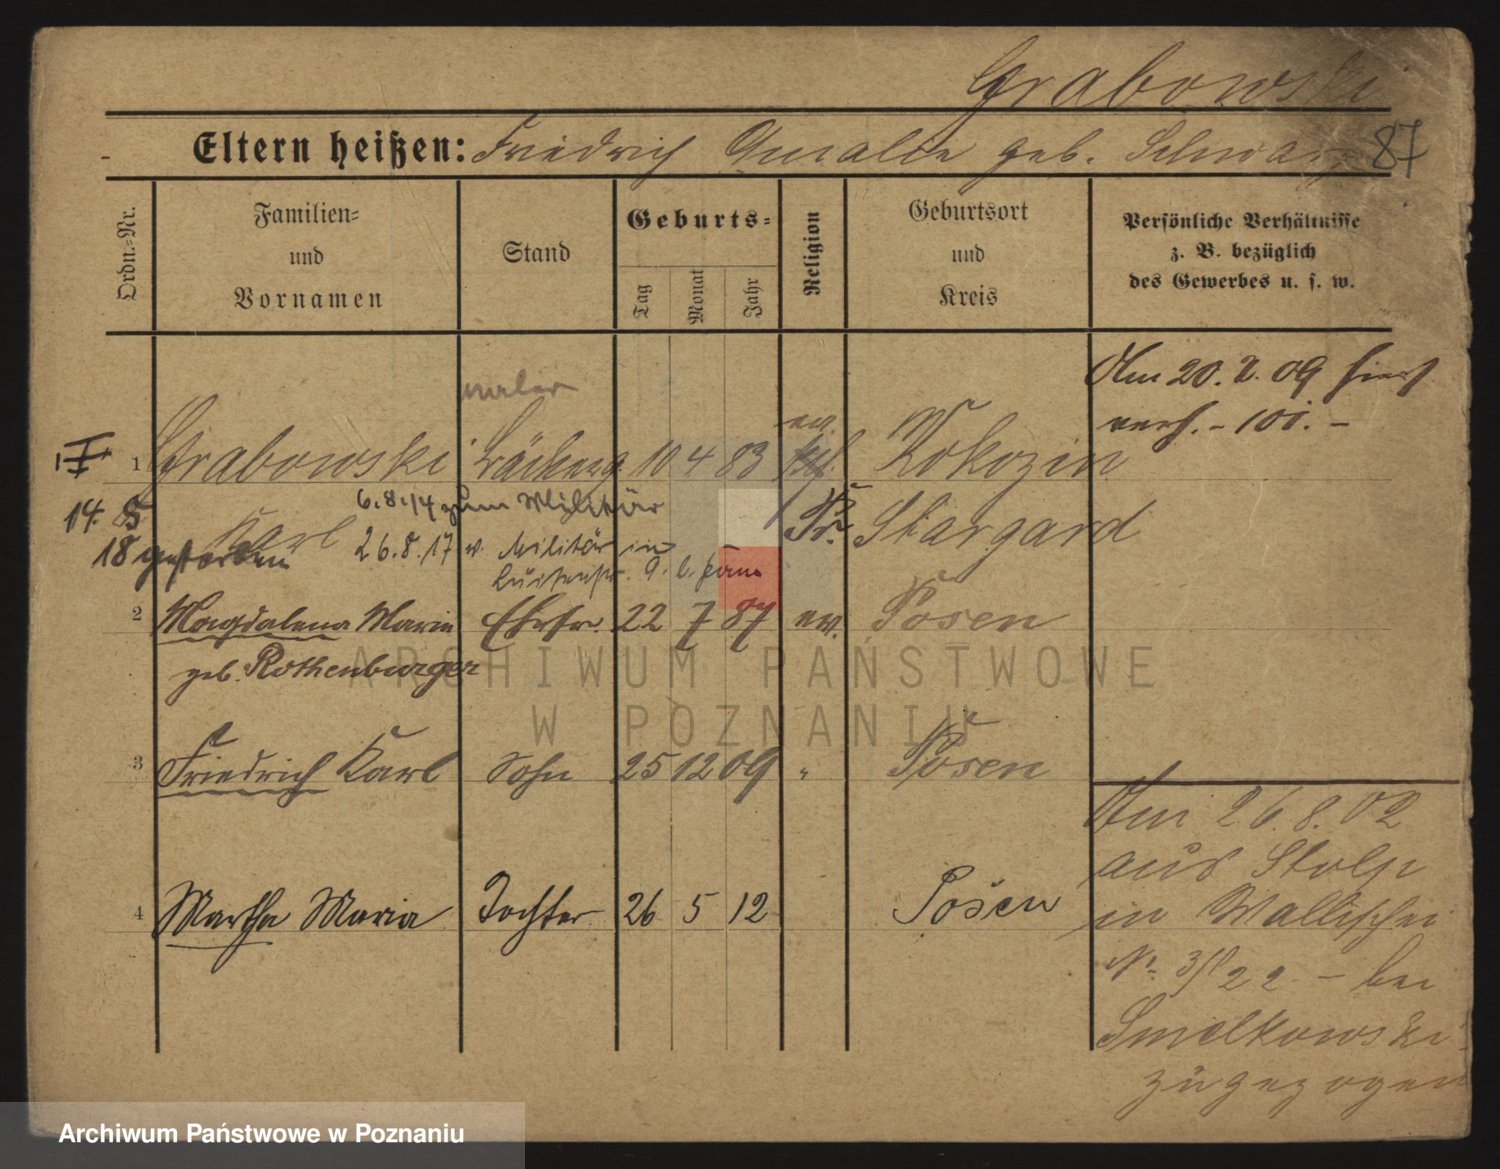 Grabowski
Eltern heißen: Friedrich Amalie geb. Schwarz 87
Ordn.=Nr.
Familien=
und
Vornamen
Stand
Geburts=
Tag
Monat
Jahr
Religion
Geburtsort
und
Kreis
Persönliche Verhältnisse
z. B. bezüglich
des Gewerbes u. s. w.
Am 20. 2. 09 hier
verh. - 101. -
maler
ev.
1 Grabowski 10 4 83 Kokozin
14. 5 Karl 6.8.14 zum Militär Pr. Stargard
18 gestorben 26.8.17 v. Militär in
2 Magdalena Marie Ehefr. 22 7 87 ev. Posen
geb. Rothenburger
3 Friedrich Karl Sohn 25 12 09 " Posen
4 Martha Maria Tochter 26 5 12 Posen
Am 26.8.02
aus Stolp
in Wallischei
No. 22 - bei
Smelkowski
zugezogen
ARCHIWUM PAŃSTWOWE
W POZNANIU
Archiwum Państwowe w Poznaniu